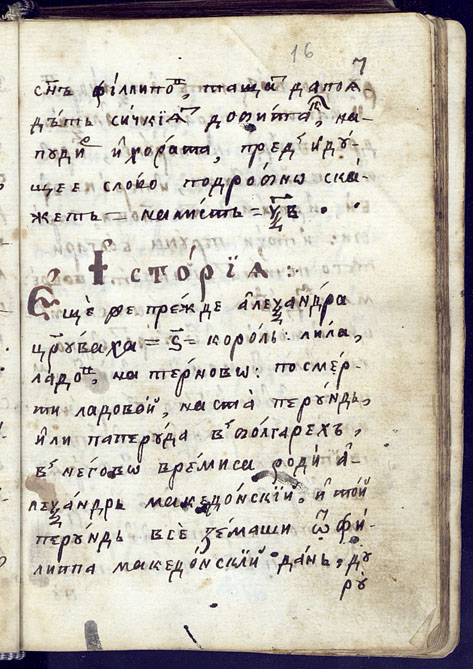 16 7
сн҃ъ филлипоⷡ, тащиⷨ да поꙗ-
дѣтъ сичкїꙗⷮ добитаⷦ, на-
пуди и хората, предъ иду-
щее слово подробнѡ ска-
жетъ = на листъ = у҃в .
Исторїꙗ :
Еще ѡе прежде алеѯандра
цр҃уваха = ѕ҃ = король: лила,
ладоⷡ, на терновѡ: по смер-
ти ладовой, наста перундъ,
или паперуда в болгарехъ,
в неговѡ времиса роди а-
леѯандръ македонскїй, и той
перундъ все земаши ѿ фи-
липпа македонскїй данъ, ду
ру